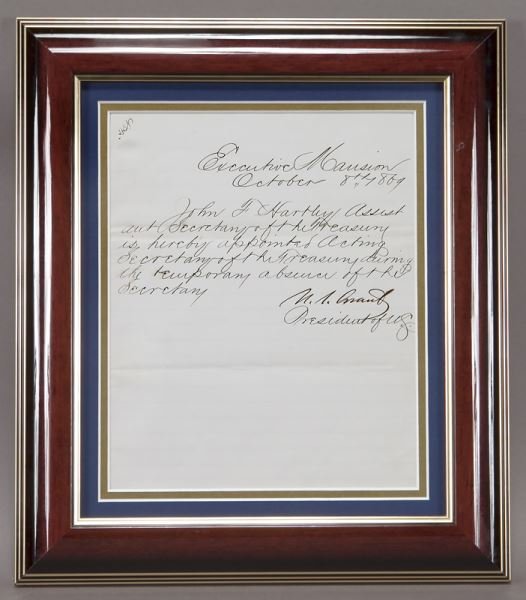 Executive Mansion
October 8th, 1869
John F Hartley Assist
ant Secretary of the Treasury
is, hereby appointed Acting
Secretary of the Treasury during
the temporary absence of the
Secretary
U. S. Grant
President of U.S.